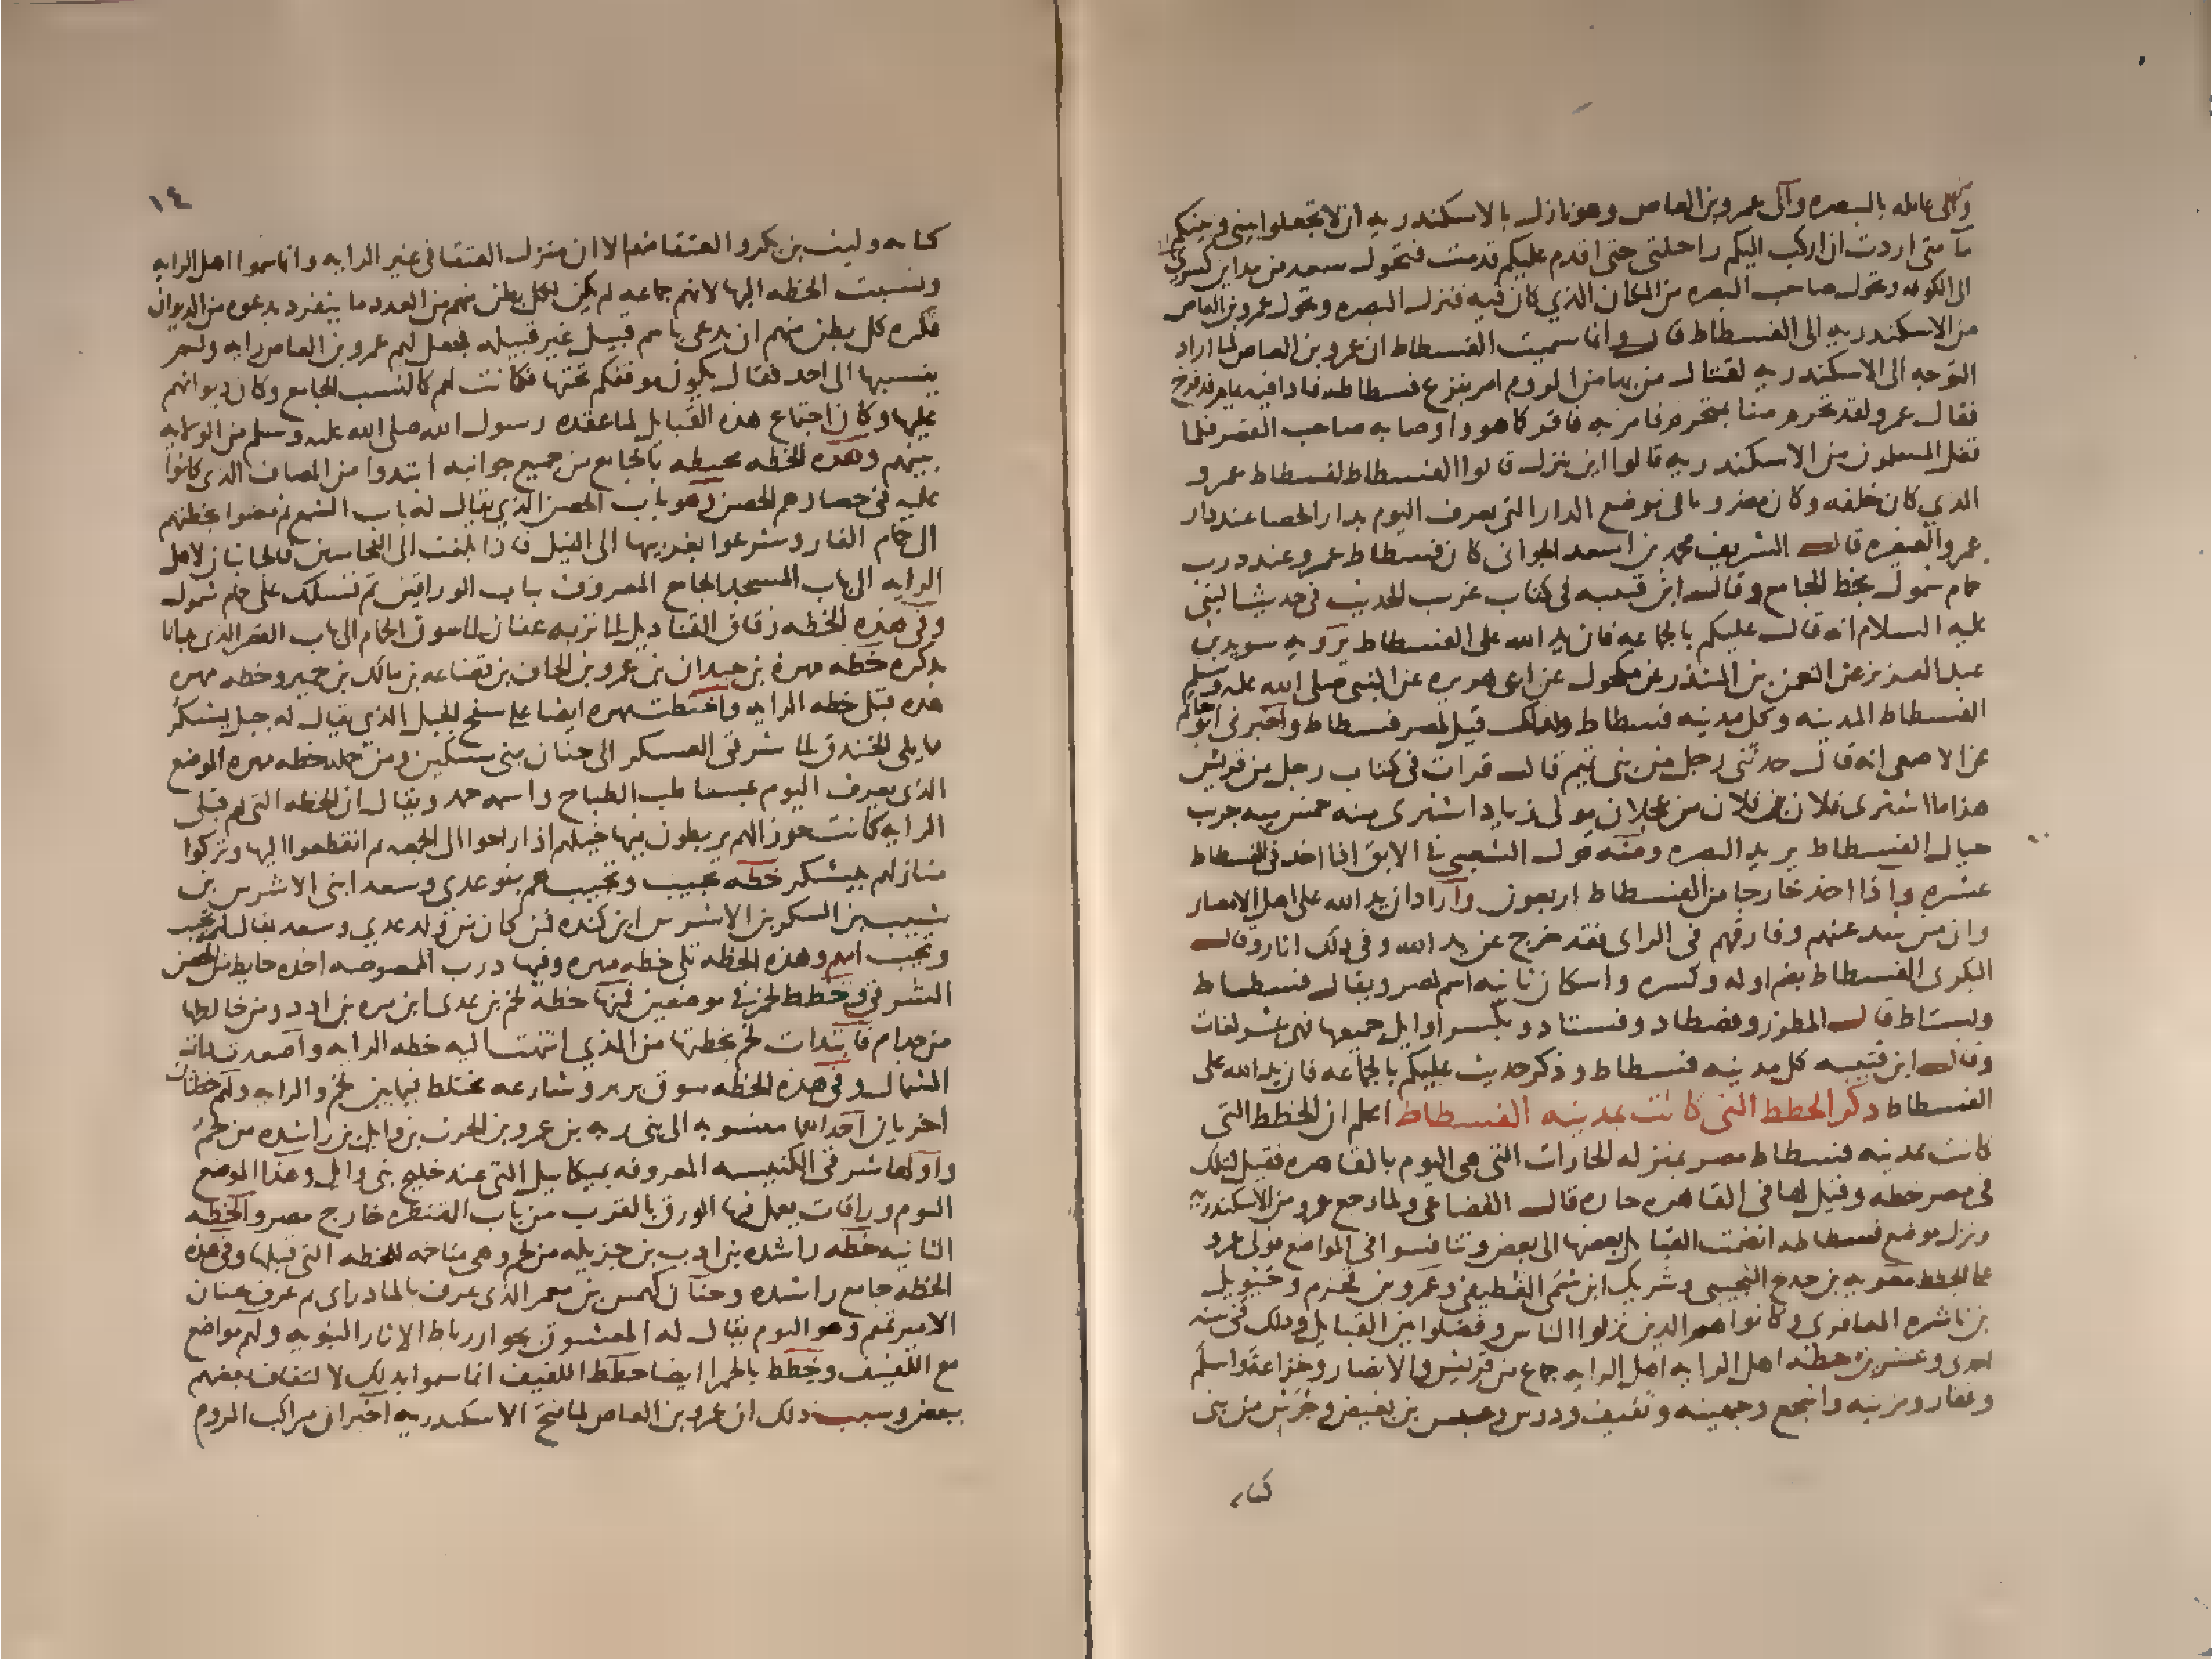 والى عامله بالبصره والى عمرو بن العاص وهو نازل بالاسكندريه ان لا تجعلوا بيني وبينكم
ما متى اردت ان اركب اليكم راحلتى حتى اقدم عليكم قدمت فتحول سعد من مداين كسرى
الى الكوفه وتحول صاحب البصره من المكان الذي كان فيه فنزل البصره وتحول عمرو بن العاص
من الاسكندريه الى الفسطاط قال وانما سميت الفسطاط ان عمرو بن العاص لما اراد
التوجه الى الاسكندريه لقتال من بها من الروم امر بنزع فسطاطه فاذا فيه يمام قد فرخ
فقال عمرو لقد تحرم منا بمتحرم فامر به فاقر كما هو واوصا به صاحب القصر فلما
قفل المسلمون من الاسكندريه قالوا اين ننزل قالوا الفسطاط لفسطاط عمرو
الذي كان خلفه وكان مضروبا فى موضع الدار التى تعرف اليوم بدار الحصا عند دار
عمرو الصغيره قال الشريف محمد بن اسعد الجوانى كان فسطاط عمرو عند درب
حمام شمول بخط الجامع وقال ابن قتيبه فى كتاب غريب الحديث فى حديث النبى
عليه السلام انه قال عليكم بالجماعه فان يد الله على الفسطاط يرويه سويد بن
عبد العزيز عن النعمن بن المنذر عن مكحول عن ابى هريره عن النبى صلى الله عليه وسلم
الفسطاط المدينه وكل مدينه فسطاط ولذلك قيل لمصر فسطاط واخبرنى ابو حاتم
عن الاصمعى انه قال حدثنى رجل من بنى تميم قال قرات فى كتاب رجل من قريش
هذا ما اشترى فلان بن فلان من عجلان مولى زياد اشترى منه خمس مييه جريب
حيال الفسطاط يريد البصره ومنه قول الشعبى فى الابق اذا اخذ فى الفسطاط
عشره واذا اخذ خارجا من الفسطاط اربعون واراد ان يد الله على اهل الامصار
وان من شذ عنهم وفارقهم فى الراى فقد خرج عن يد الله وفى ذلك اثار وقال
البكرى الفسطاط بضم اوله وكسره واسكان ثانيه اسم لمصر ويقال فسطاط
وبستاط قال المطرز وفصطاد وفستاد وبكسر اوايل جميعها فهى عشر لغات
وقال ابن قتيبه كل مدينه فسطاط وذكر حديث عليكم بالجماعه فان يد الله على
الفسطاط ذكر الخطط التى كانت بمدينه الفسطاط اعلم ان الخطط التى
كانت بمدينه فسطاط مصر بمنزله الحارات التى هى اليوم بالقاهره فقيل لتلك
فى مصر خطه وقيل لها فى القاهره حاره قال القضاعى ولما رجع عمرو من الاسكندريه
ونزل موضع فسطاطه انضمت القبايل بعضها الى بعض وتنافسوا فى المواضع فولى عمرو
على الخطط معويه بن حديج التجيبى وشريك ابن سمى الغطيفى وعمرو بن قحزم وحيويل
بن ناشره المعافرى وكانوا هم الذين نزلوا الناس وفصلوا بين القبايل وذلك فى سنه
احدى وعشرين خطه اهل الرايه اهل الرايه جماع من قريش والانصار وخزاعه واسلم
وغفار ومزينه واشجع وجهينه وثقيف ودوس وعبس بن بغيض وجرش من بنى
كنا
١٤
كنانه وليث بن بكر والعتقا منهم الا ان منزل العتقا فى غير الرايه وانما سموا اهل الرايه
ونسبت الخطه اليها لانهم جماعه لم يكن لكل بطن منهم من العدد ما ينفرد بدعوه من الديوان
فكره كل بطن منهم ان يدعى باسم قبيل غير قبيله فجعل لهم عمرو بن العاص رايه ولم
ينسبها الى احد فقال يكون موقفكم تحتها فكانت لهم كالنسب الجامع وكان ديوانهم
عليها وكان اجتماع هذه القبايل لما عقده رسول الله صلى الله عليه وسلم من الولايه
بينهم وهذه الخطه محيطه بالجامع من جميع جوانبه ابتدوا من المصاف الذى كانوا
عليه فى حصارهم الحصن وهو باب الحصن الذي يقال له باب الشمع ثم مضوا بخطتهم
الى حمام الفار وشرعوا بغربيها الى النيل فاذا بلغت الى النحاسين فالجانبان لاهل
الرايه الى باب المسجد الجامع المعروف بباب الوراقين ثم تسلك على حمام شمول
وفى هذه الخطه زقاق القناديل الى تربه عفان الى سوق الحمام الى باب القصر الذى بدانا
بذكره خطه مهره بن حيدان بن عمرو بن الحاف بن قضاعه بن مالك بن حمير وخطه مهره
هذه قبلى خطه الرايه واختطت مهره ايضا على سفح الجبل الذى يقال له جبل يشكر
مما يلى الخندق الى شرقى العسكر الى جنان بنى مسكين ومن جمله خطه مهره الموضع
الذى يعرف اليوم بمساطب الطباخ واسمه حمد ويقال ان الخطه التى لهم قبلى
الرايه كانت حوزا لهم يربطون فيها خيلهم اذا راحوا الى الجمعه ثم انقطعوا اليها وتركوا
منازلهم بيشكر خطه تجيب وتجيب هم بنو عدى وسعد ابنى الاشرس بن
شبيب بن السكن بن الاشرس ابن كنده فمن كان من ولد عدى وسعد يقال لهم تجيب
وتجيب امهم وهذه الخطه تلى خطه مهره وفيها درب الممصوصه اخذه حايط من الحصن
الشرقى وخطط لخم فى موضعين فمنها خطه لخم بن عدى ابن مره بن ادد ومن خالطها
من جذام فابتدات لخم بخطتها من الذى انتهت اليه خطه الرايه واصعدت ذات
الشمال وفى هذه الخطه سوق بربر وشارعه مختلط فيما بين لخم والرايه ولهم خطتان
اخريان احداهما منسوبه الى بنى ريه بن عمرو بن الحرث بن وايل بن راشده من لخم
واولها شرقى الكنيسه المعروفه بميكاييل التى عند خليج بنى وايل وهذا الموضع
اليوم وراقات يعمل فيها الورق بالقرب من باب القنطره خارج مصر والخطه
الثانيه خطه راشده بن ادب بن جزيله من لخم وهى متاخمه للخطه التى قبلها وفى هذه
الخطه جامع راشده وجنان كهمس بن معمر الذى عرف بالمادراى ثم عرف بجنان
الامير تميم وهو اليوم يقال له المعشوق بجوار رباط الاثار النبويه ولهم مواضع
مع اللفيف وخطط بالحمرا ايضا خطط اللفيف انما سموا بذلك لالتفاف بعضهم
ببعض وسبب ذلك ان عمرو بن العاص لما فتح الاسكندريه اخبر ان مراكب الروم